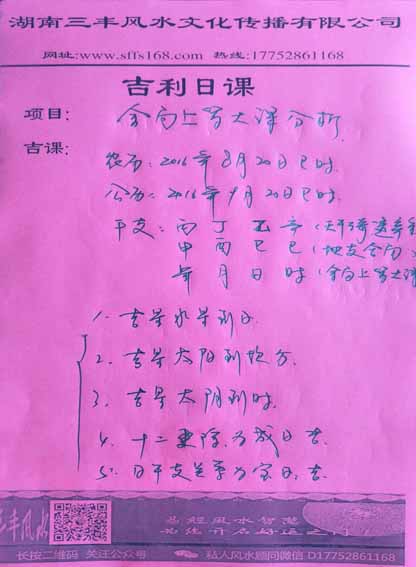 湖南三丰风水文化传播有限公司
网址:www.sffs168.com 热线:17752861168
吉利日课
项目: 合局上等大课分析
吉课: 农历:2016年8月20日巳时
公历:2016年9月20日巳时
干支:丙 丁 乙 辛
申 酉 巳 巳 (地支合局
年 月 日 时 (合局上等大课
1. 吉星水星到
2. 吉星太阳到
3. 吉星太阴到时
4. 十二建除为成日吉
5. 日干支 为宝日,吉
三丰风水
易经风水智慧
长按二维码 关注公众号 私人风水顾问微信 D17752861168